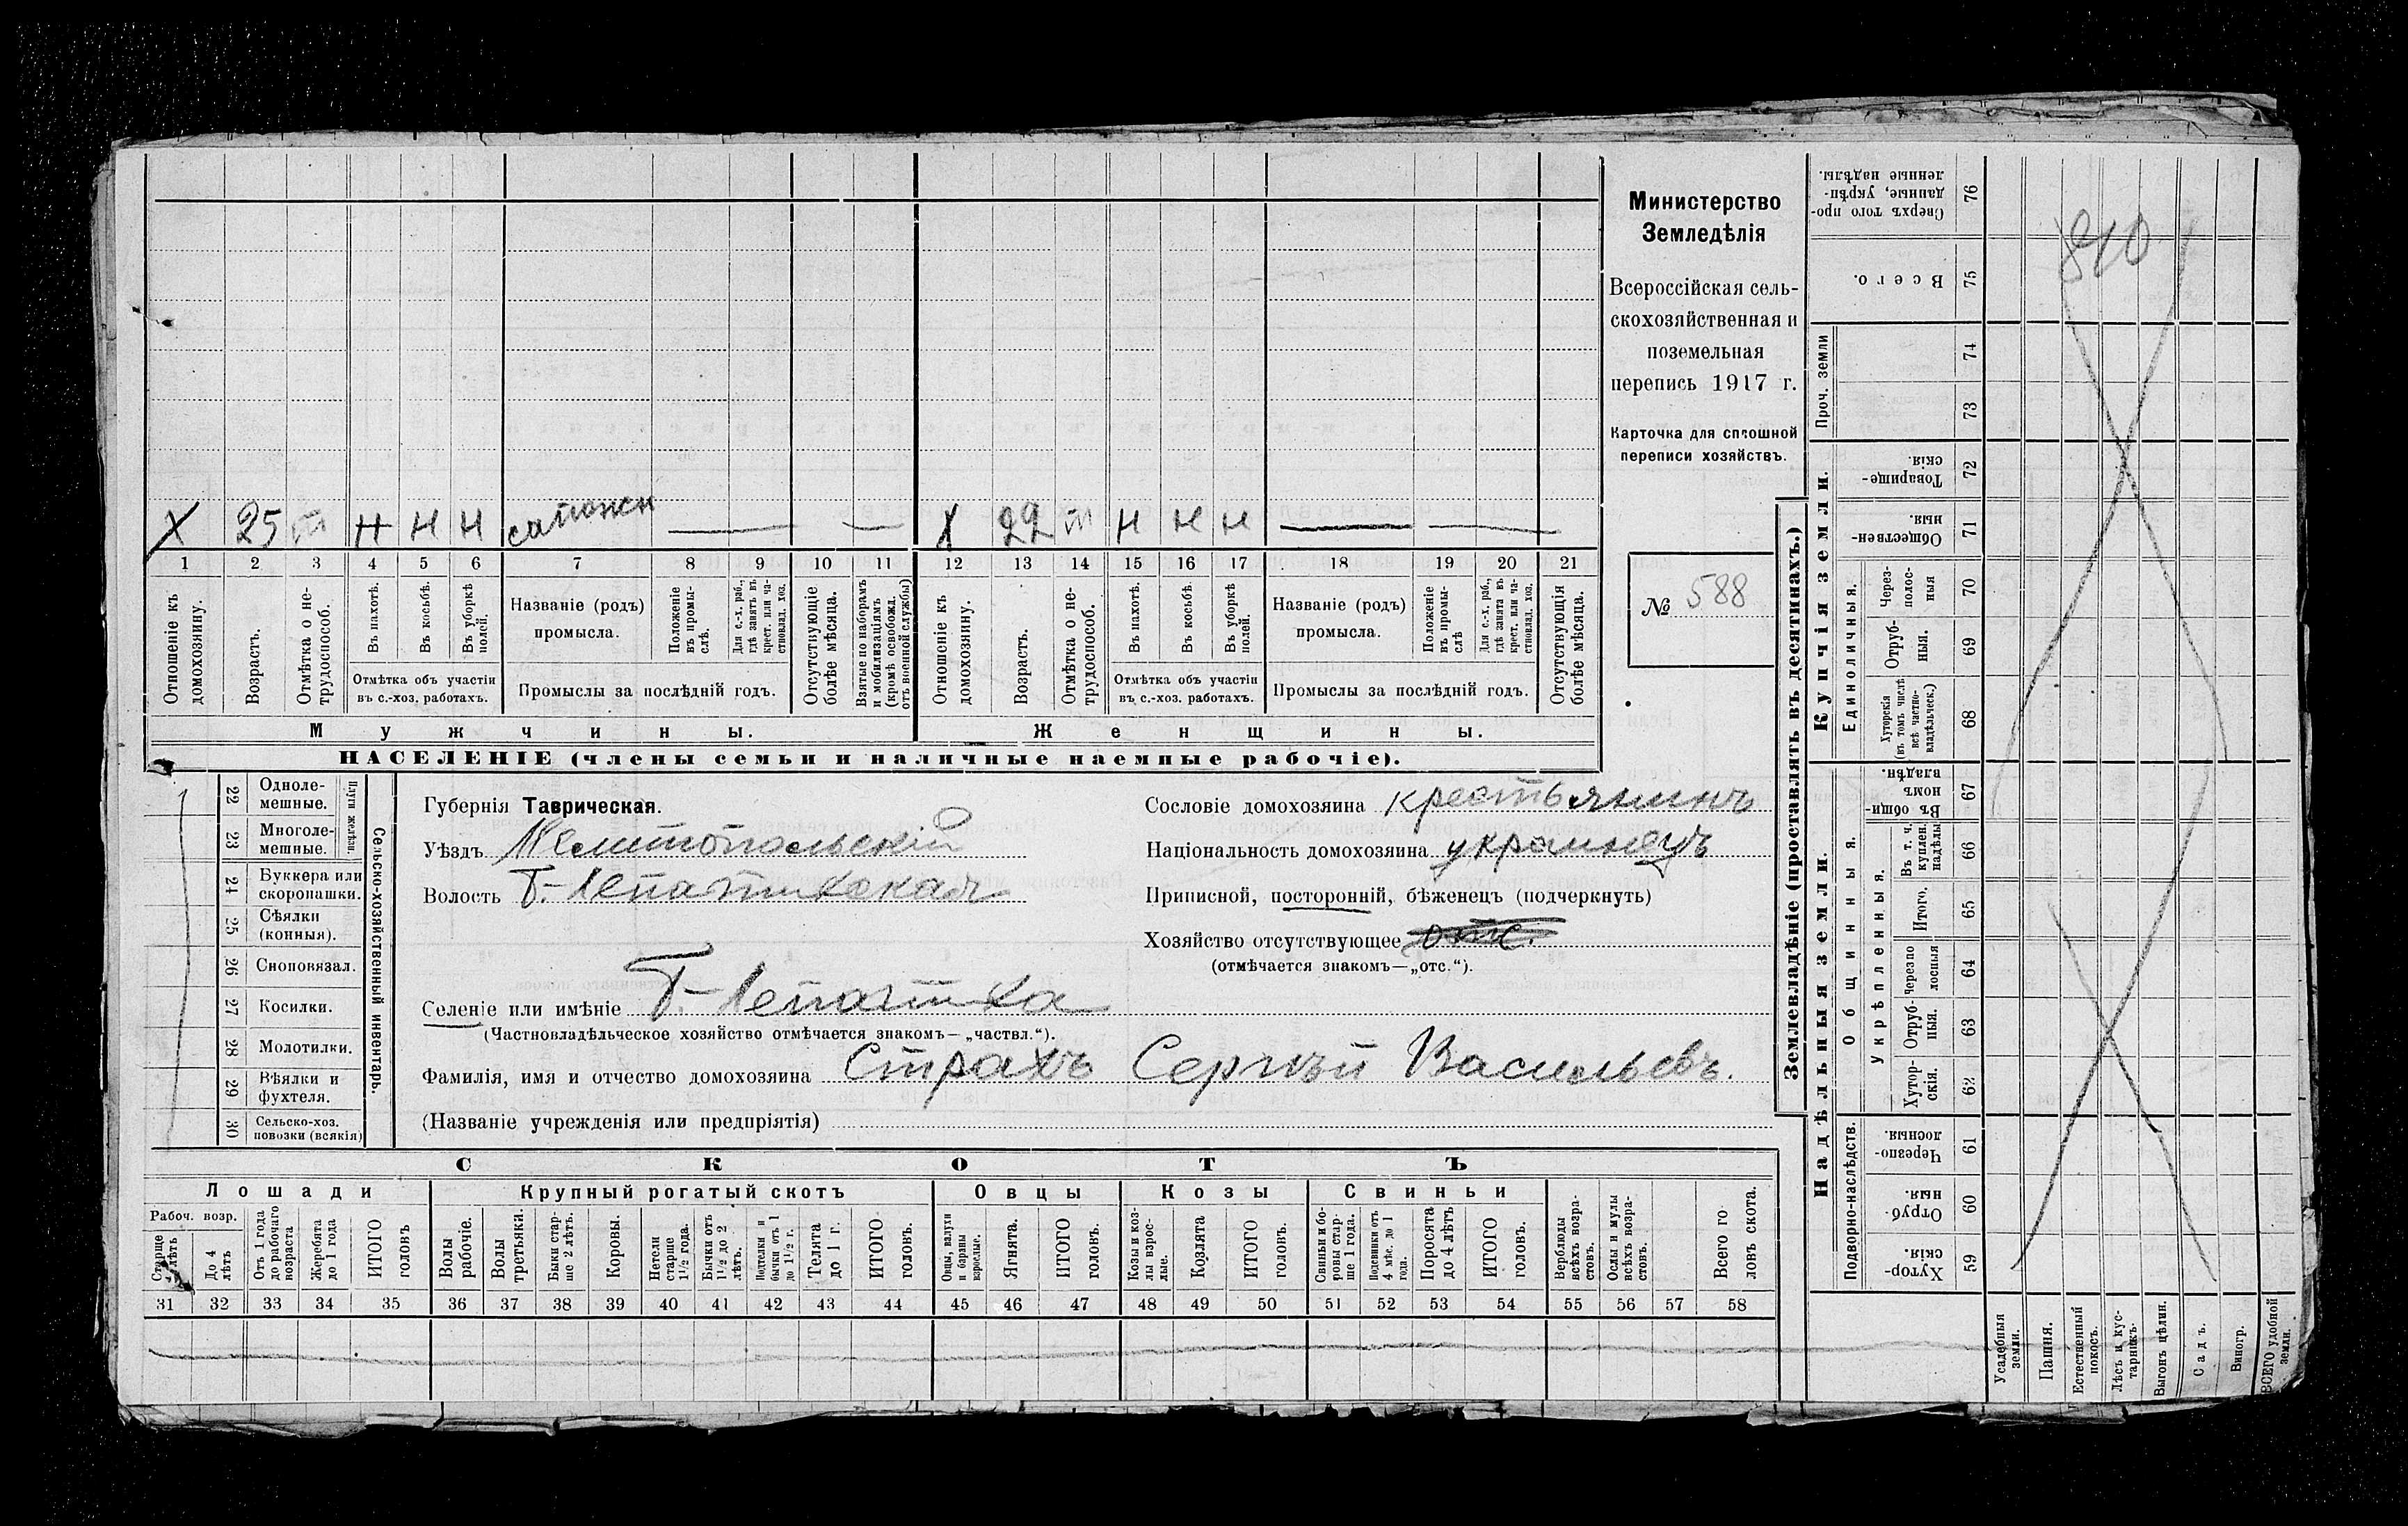 Х 25 т Н Н Н сапожн — — Х 22 т Н Н Н — —
1 2 3 4 5 6 7 8 9 10 11 12 13 14 15 16 17 18 19 20 21
Отношеніе къ домохозяину.
Возрастъ.
Отмѣтка о нетрудоспособ.
Въ пахотѣ.
Въ косьбѣ.
Въ уборкѣ полей.
Отмѣтка объ участіи
въ с.-хоз. работахъ.
Названіе (родъ)
промысла.
Положеніе въ промыслѣ.
Для с.-х. раб., гдѣ занятъ въ крест. или частновлад. хоз.
Промыслы за послѣдній годъ.
Отсутствующіе болѣе мѣсяца.
Взятые по наборамъ и мобилизаціямъ (кромѣ освобожд. отъ военной службы)
Отношеніе къ домохозяину.
Возрастъ.
Отмѣтка о нетрудоспособ.
Въ пахотѣ.
Въ косьбѣ.
Въ уборкѣ полей.
Отмѣтка объ участіи
въ с.-хоз. работахъ.
Названіе (родъ)
промысла.
Положеніе въ промыслѣ
Для с.-х. раб., гдѣ занята въ крест. или частновлад. хоз.
Промыслы за послѣдній годъ.
Отсутствующія болѣе мѣсяца.
Мужчины.
Женщины.
НАСЕЛЕНІЕ (члены семьи и наличные наемные рабочіе).
Министерство
Земледѣлія
Всероссійская сель-
скохозяйственная и
поземельная
перепись 1917 г.
Карточка для сплошной
переписи хозяйствъ.
№ 588
Сельско-хозяйственный инвентарь.
Плуги желѣзн
22 Одноле-
мешные.
23 Многоле-
мешные.
24 Буккера или
скоропашки.
25 Сѣялки
(конныя).
26 Сноповязал.
27 Косилки.
28 Молотилки.
29 Вѣялки и
фухтеля.
30 Сельско-хоз.
повозки (всякія)
Губернія Таврическая.
Уѣздъ Мелитопольскій
Волость Г.-Лепатихская
Селеніе или имѣніе Г.-Лепатиха
(Частновладѣльческое хозяйство отмѣчается знакомъ—„частвл.“).
Фамилія, имя и отчество домохозяина Страхъ Сергѣй Васильевъ.
(Названіе учрежденія или предпріятія)
Сословіе домохозяина крестьянинъ
Національность домохозяина украинецъ
Приписной, посторонній, бѣженецъ (подчеркнуть)
Хозяйство отсутствующее отс.
(отмѣчается знакомъ—„отс.“).
СКОТЪ
Лошади
Рабоч. возр.
Старше 4 лѣтъ
До 4 лѣтъ
Отъ 1 года до рабочаго возраста
Жеребята до 1 года
ИТОГО головъ
Крупный рогатый скотъ
Волы рабочіе.
Волы третьяки.
Быки старше 2 лѣтъ.
Коровы.
Нетели старше 1½ года.
Бычки отъ 1½ до 2 лѣтъ.
Подтелки и бычки отъ 1 до 1½ г.
Телята до 1 г.
ИТОГО головъ.
Овцы
Овцы, валухи и бараны взрослые.
Ягнята.
ИТОГО головъ.
Козы
Козы и козлы взрослые.
Козлята
ИТОГО головъ.
Свиньи
Свиньи и боровы старше 1 года.
Подсвинки отъ 4 мѣс. до 1 года.
Поросята до 4 лѣтъ
ИТОГО головъ.
Верблюды всѣхъ возрастовъ.
Ослы и мулы всѣхъ возрастовъ.
Всего головъ скота.
31 32 33 34 35 36 37 38 39 40 41 42 43 44 45 46 47 48 49 50 51 52 53 54 55 56 57 58
Землевладѣніе (проставлять въ десятинахъ.)
Купчія земли.
Надѣльныя земли.
Сверхъ того проданные, укрѣпленные надѣлы. 76
Всего. 75
Проч. земли
74
73
Товарищескія. 72
Общественныя. 71
Единоличныя.
Черезполосныя 70
Отрубныя. 69
Хуторскія (въ томъ числѣ всѣ частновладѣльческ.) 68
Общинныя.
Въ общинномъ владѣн. 67
Укрѣпленныя.
Въ т. ч. куплен. надѣлы 66
Итого. 65
Черезполосныя 64
Отрубныя. 63
Хуторскія. 62
Подворно-наслѣдств.
Черезполосныя. 61
Отрубныя. 60
Хуторскія. 59
Усадебныя земли.
Пашня.
Естественный покосъ.
Лѣсъ и кустарникъ.
Выгонъ цѣлин.
Садъ.
Виногр.
ВСЕГО удобной земли.